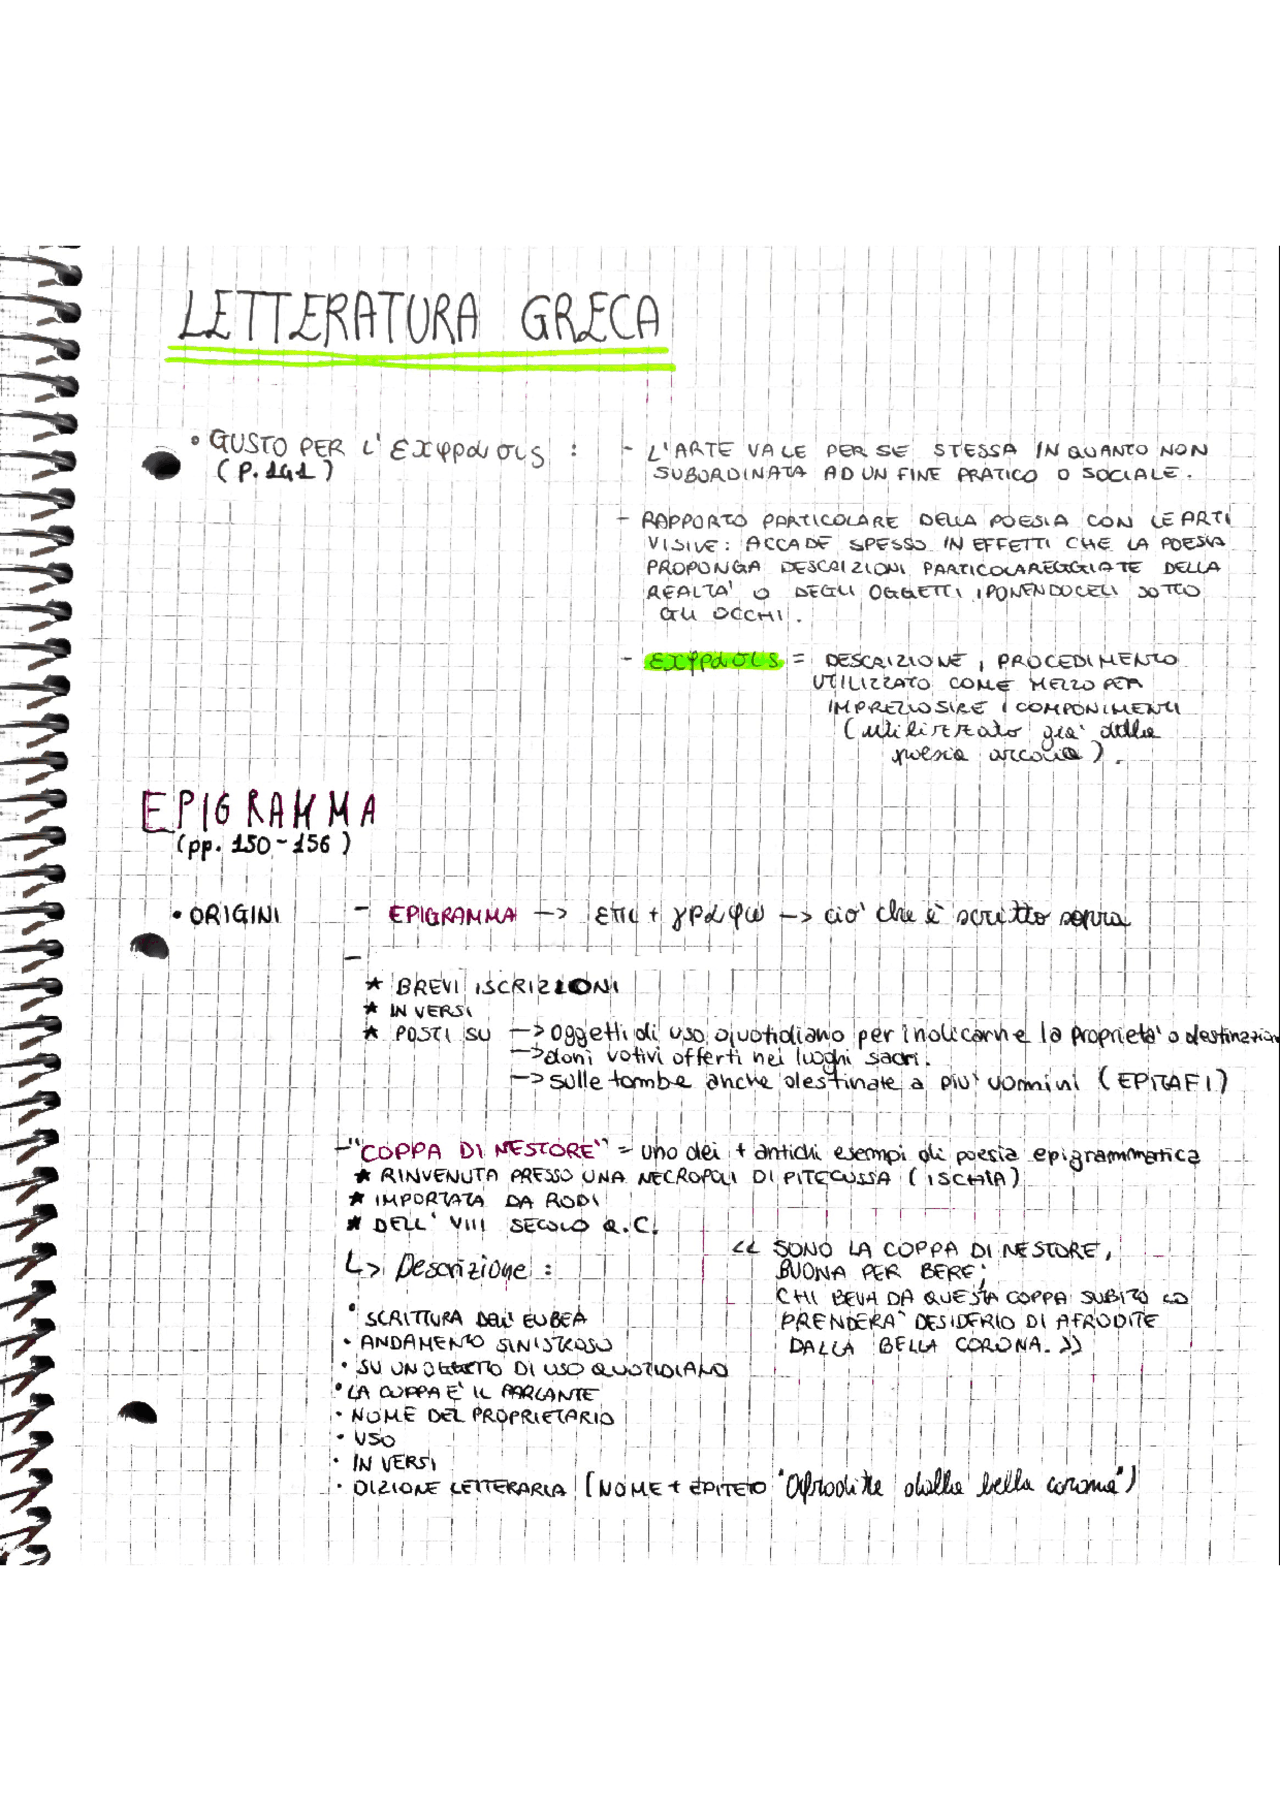 LETTERATURA GRECA
• GUSTO PER L' εχφρασις :
(P. 141)
- L'ARTE VALE PER SE STESSA IN QUANTO NON
SUBORDINATA AD UN FINE PRATICO O SOCIALE.
- RAPPORTO PARTICOLARE DELLA POESIA CON LE ARTI
VISIVE: ACCADE SPESSO IN EFFETTI CHE LA POESIA
PROPONGA DESCRIZIONI PARTICOLAREGGIATE DELLA
REALTA' O DEGLI OGGETTI, PONENDOCELI SOTTO
GLI OCCHI.
- εχφρασις = DESCRIZIONE, PROCEDIMENTO
UTILIZZATO COME MEZZO PER
IMPREZIOSIRE I COMPONIMENTI
(utilizzato gia' dalla
poesia arcaica).
EPIGRAMMA
(pp. 150-156)
• ORIGINI - EPIGRAMMA -> επι + γραφω -> cio' che è scritto sopra
-
★ BREVI ISCRIZIONI
★ IN VERSI
★ POSTI SU -> oggetti di uso quotidiano per indicarne la proprieta' o destinazion
-> doni votivi offerti nei luoghi sacri.
-> sulle tombe anche destinate a piu' uomini (EPITAFI)
- "COPPA DI NESTORE" = uno dei + antichi esempi di poesia epigrammatica
★ RINVENUTA PRESSO UNA NECROPOLI DI PITECUSSA (ISCHIA)
★ IMPORTATA DA RODI
★ DELL' VIII SECOLO a.C.
↳ Descrizione :
• SCRITTURA DELL' EUBEA
• ANDAMENTO SINISTROSO
• SU UN OGGETTO DI USO QUOTIDIANO
• LA COPPA E' IL PARLANTE
• NOME DEL PROPRIETARIO
• USO
• IN VERSI
• DIZIONE LETTERARIA (NOME + EPITETO "Afrodite dalla bella corona")
<< SONO LA COPPA DI NESTORE,
BUONA PER BERE;
CHI BEVA DA QUESTA COPPA SUBITO LO
PRENDERA' DESIDERIO DI AFRODITE
DALLA BELLA CORONA. >>